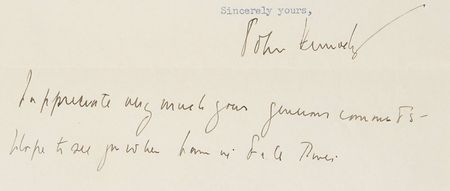 Sincerely yours,
John Kennedy
I appreciate very much your generous comments -
Hope to see you when I am in